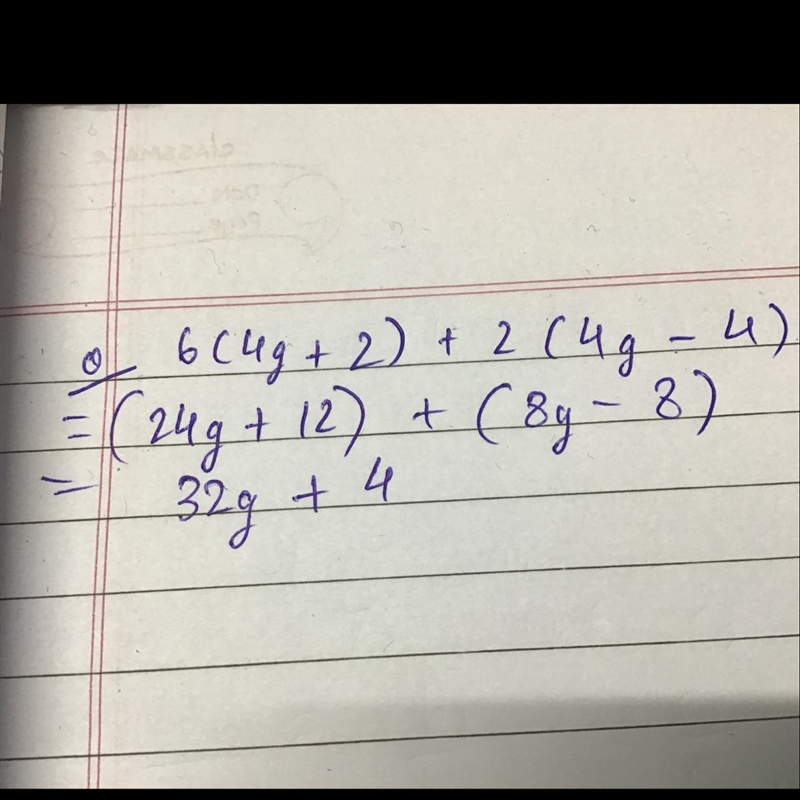 CLASSMATE
Date
Page
Q 6(4g + 2) + 2 (4g - 4)
= (24g + 12) + (8g - 8)
= 32g + 4